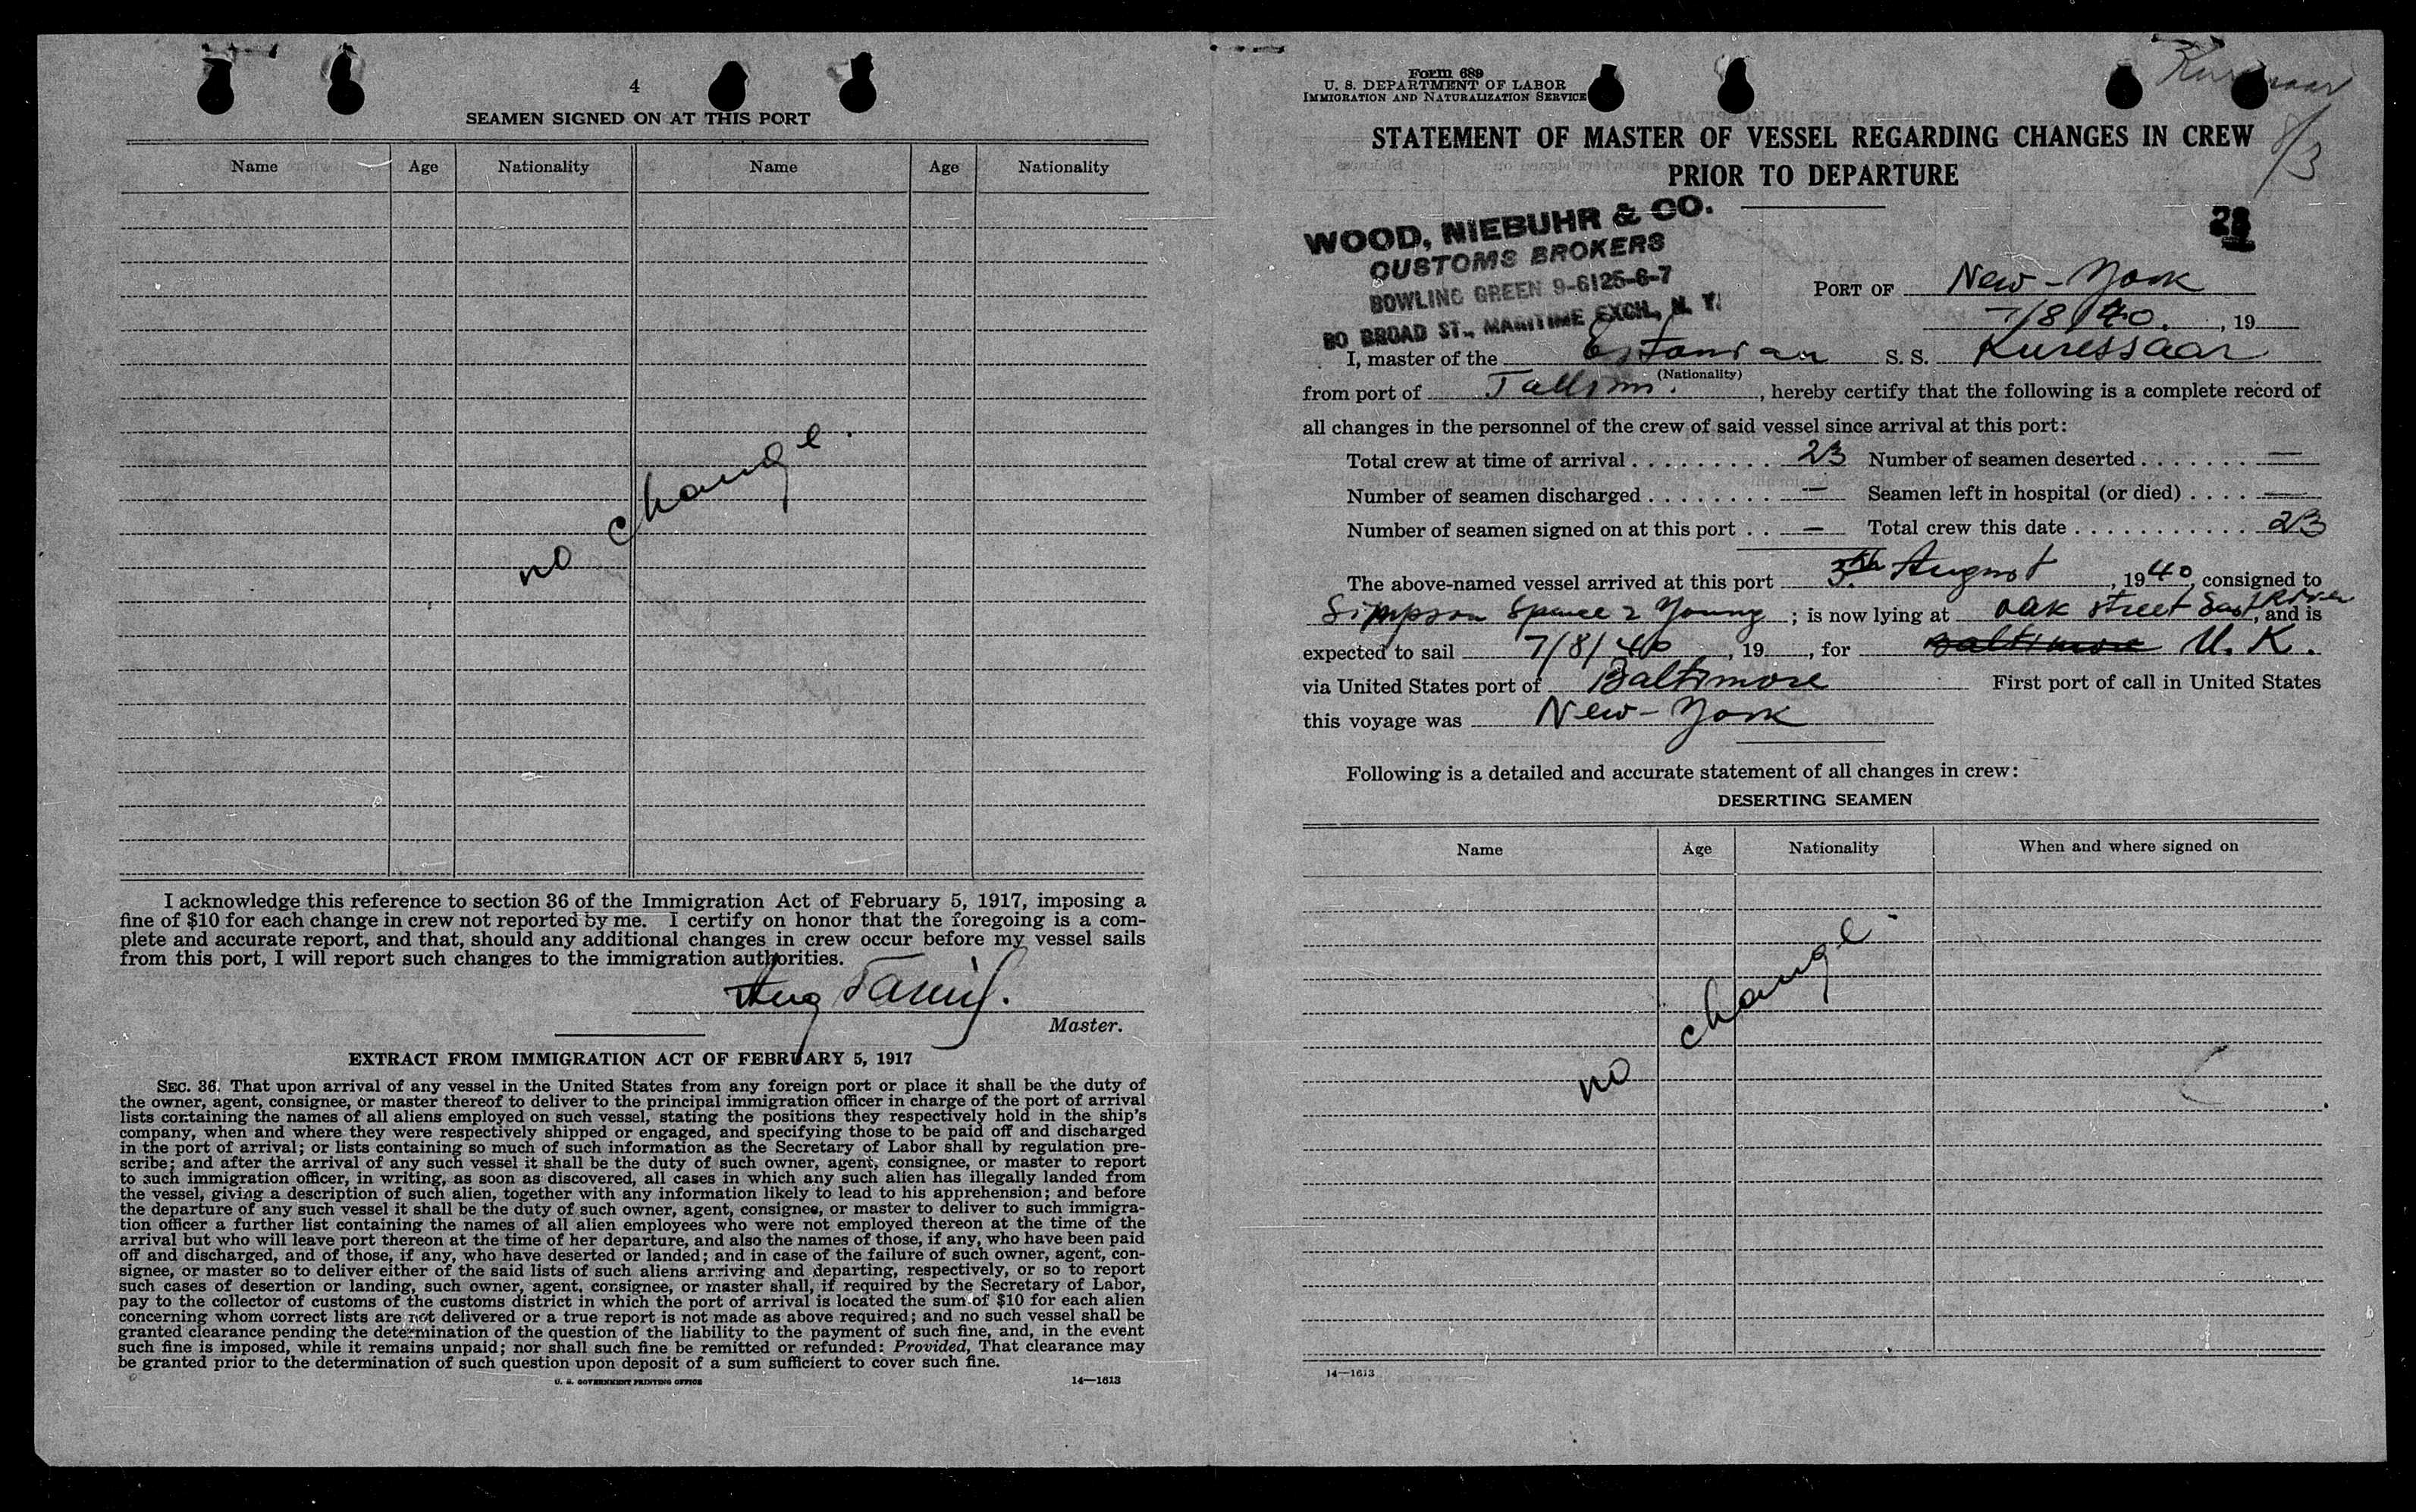 4
SEAMEN SIGNED ON AT THIS PORT
Name Age Nationality Name Age Nationality
no change.
I acknowledge this reference to section 36 of the Immigration Act of February 5, 1917, imposing a
fine of $10 for each change in crew not reported by me. I certify on honor that the foregoing is a com-
plete and accurate report, and that, should any additional changes in crew occur before my vessel sails
from this port, I will report such changes to the immigration authorities.
Aug
Master.
EXTRACT FROM IMMIGRATION ACT OF FEBRUARY 5, 1917
SEC. 36. That upon arrival of any vessel in the United States from any foreign port or place it shall be the duty of
the owner, agent, consignee, or master thereof to deliver to the principal immigration officer in charge of the port of arrival
lists containing the names of all aliens employed on such vessel, stating the positions they respectively hold in the ship's
company, when and where they were respectively shipped or engaged, and specifying those to be paid off and discharged
in the port of arrival; or lists containing so much of such information as the Secretary of Labor shall by regulation pre-
scribe; and after the arrival of any such vessel it shall be the duty of such owner, agent, consignee, or master to report
to such immigration officer, in writing, as soon as discovered, all cases in which any such alien has illegally landed from
the vessel, giving a description of such alien, together with any information likely to lead to his apprehension; and before
the departure of any such vessel it shall be the duty of such owner, agent, consignee, or master to deliver to such immigra-
tion officer a further list containing the names of all alien employees who were not employed thereon at the time of the
arrival but who will leave port thereon at the time of her departure, and also the names of those, if any, who have been paid
off and discharged, and of those, if any, who have deserted or landed; and in case of the failure of such owner, agent, con-
signee, or master so to deliver either of the said lists of such aliens arriving and departing, respectively, or so to report
such cases of desertion or landing, such owner, agent, consignee, or master shall, if required by the Secretary of Labor,
pay to the collector of customs of the customs district in which the port of arrival is located the sum of $10 for each alien
concerning whom correct lists are not delivered or a true report is not made as above required; and no such vessel shall be
granted clearance pending the determination of the question of the liability to the payment of such fine, and, in the event
such fine is imposed, while it remains unpaid; nor shall such fine be remitted or refunded: Provided, That clearance may
be granted prior to the determination of such question upon deposit of a sum sufficient to cover such fine.
U. S. GOVERNMENT PRINTING OFFICE 14—1613
Form 689
U. S. DEPARTMENT OF LABOR
IMMIGRATION AND NATURALIZATION SERVICE
8/3
STATEMENT OF MASTER OF VESSEL REGARDING CHANGES IN CREW
PRIOR TO DEPARTURE
WOOD, NIEBUHR & CO.
CUSTOMS BROKERS
BOWLING GREEN 9-6125-6-7
80 BROAD ST., MARITIME EXCH., N. Y.
28
PORT OF New-York
7/8 40. , 19
I, master of the Estonian S. S. Kuressaar
(Nationality)
from port of Tallinn. , hereby certify that the following is a complete record of
all changes in the personnel of the crew of said vessel since arrival at this port:
Total crew at time of arrival . . . . . . . . . 23 Number of seamen deserted . . . . . . . —
Number of seamen discharged . . . . . . . . — Seamen left in hospital (or died) . . . . —
Number of seamen signed on at this port . . — Total crew this date . . . . . . . . . . . . 23
The above-named vessel arrived at this port 3th August , 1940, consigned to
Simpson Spence & Young ; is now lying at Oak street East River , and is
expected to sail 7/8/40 , 19 , for Baltimore U. K.
via United States port of Baltimore First port of call in United States
this voyage was New-York
Following is a detailed and accurate statement of all changes in crew:
DESERTING SEAMEN
Name Age Nationality When and where signed on
no change.
14—1613